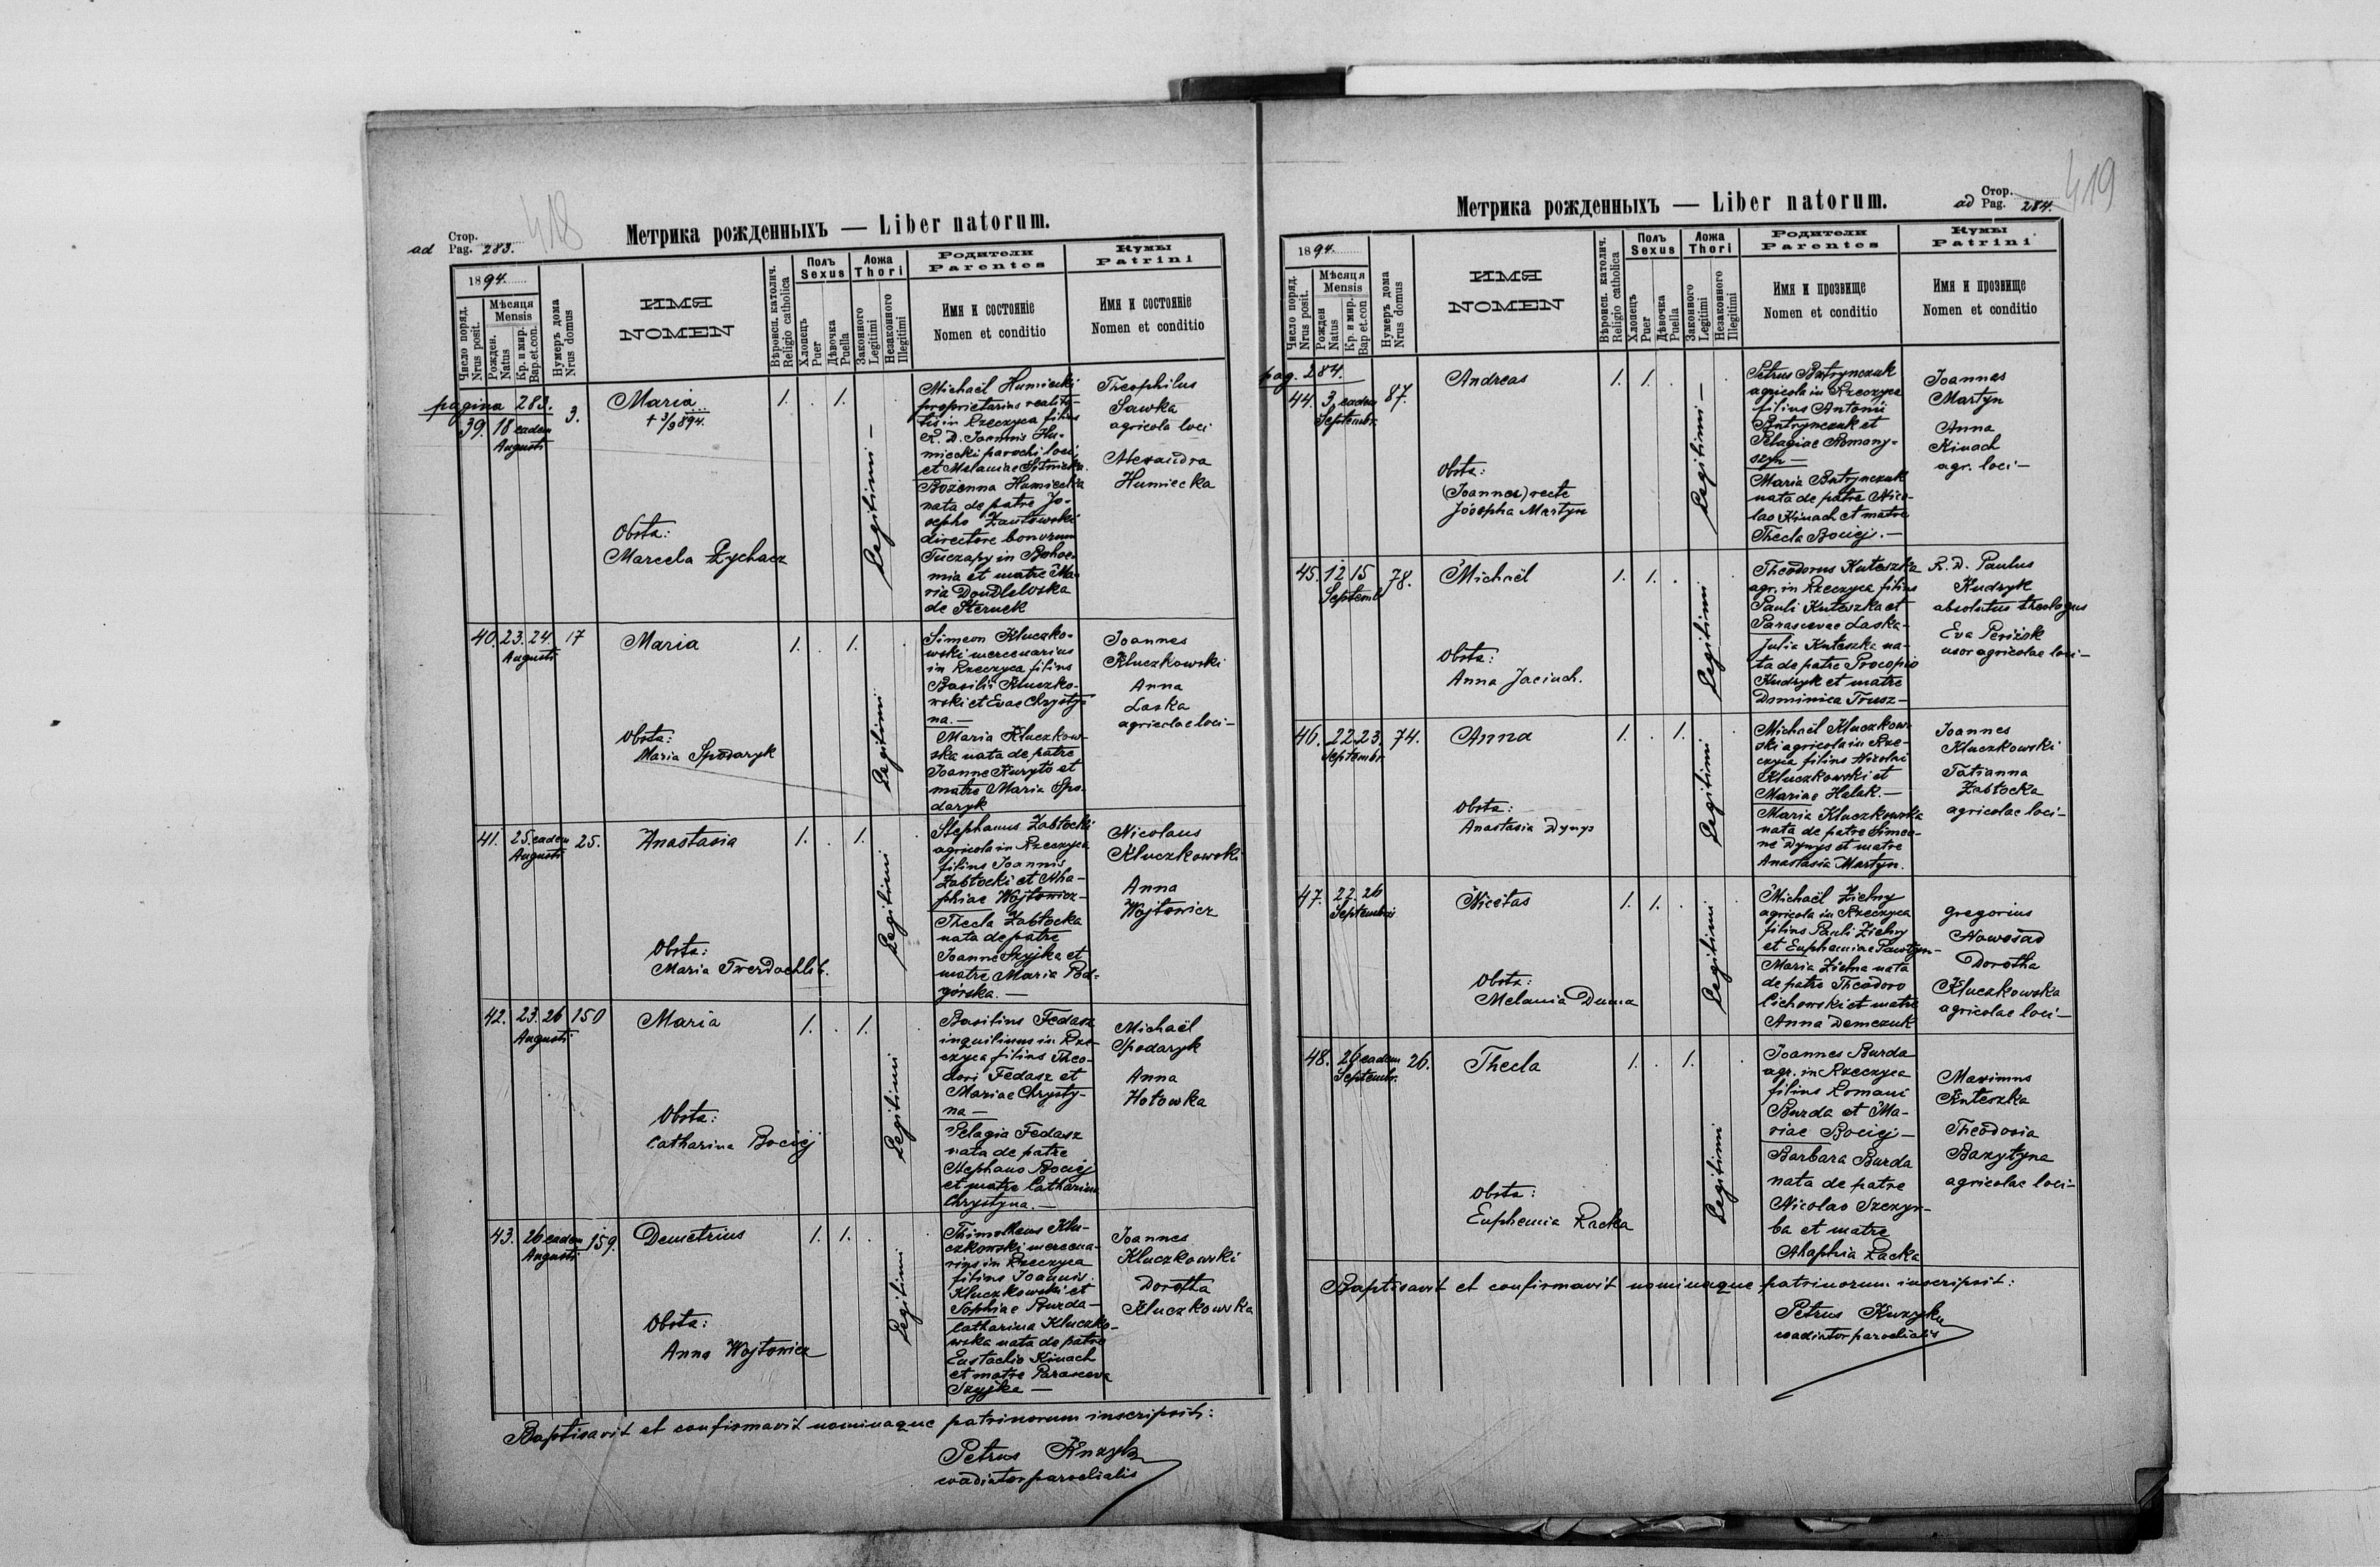 418
Метрика рожденныхъ — Liber natorum.
ad Стор.
Pag. 283.
1894.
Число поряд.
Nrus posit.
Мѣсяця
Mensis
Рожден.
Natus
Кр. и мир.
Bap.et.con.
Нумеръ дома
Nrus domus
ИМЯ
NOMEN
Вѣроисп. католич.
Religio catholica
Полъ
Sexus
Хлопець
Puer
Дѣвочка
Puella
Ложа
Thori
Законного
Legitimi
Незаконного
Illegitimi
Родители
Parentes
Имя и состояніе
Nomen et conditio
Кумы
Patrini
Имя и состояніе
Nomen et conditio
pagina 283.
39. 18 eadem
Augusti
3.
Maria
+ 3/9 894.
Obsta:
Marcela Rychacz
1. . 1.
Legitimi —
Michaël Humiecki
proprietarius realita-
tis in Rzeczyca filius
R. D. Joannis Hu-
miecki parochi loci
et Melaniae Sitnicka.
Bozenna Humiecka
nata de patre Jo-
sepho Zautowski
directore bonorum
Tuczapy in Bohoe-
mia et matre Ma-
ria Doudlebska
de Sterneck
Theophilus
Sawka
agricola loci
Alexandra
Humiecka
40. 23. 24. 17
Augusti
Maria
Obsta:
Maria Spodaryk
1. . 1. .
Legitimi
Simeon Kluczko-
wski mercenarius
in Rzeczyca filius
Basilii Kluczko-
wski et Evae Chrysty-
na. —
Maria Kluczkow-
ska nata de patre
Joanne Kuryło et
matre Maria Spo-
daryk
Joannes
Kluczkowski
Anna
Laska
agricolae loci —
41. 25. eadem 25.
Augusti
Anastasia
Obsta:
Maria Twerdochlib.
1. . 1. .
Legitimi
Stephanus Zabłocki
agricola in Rzeczyca
filius Joannis
Zabłocki et Aha-
phiae Wojtowicz —
Thecla Zabłocka
nata de patre
Joanne Szyjka et
matre Maria Pod-
górska. —
Nicolaus
Kluczkowski
Anna
Wojtowicz
42. 23. 26 150
Augusti
Maria
Obsta:
Catharina Bociej
1. . 1. .
Legitimi
Basilius Fedasz
inquilinus in Rze-
czyca filius Theo-
dori Fedasz et
Mariae Chrysty-
na —
Pelagia Fedasz
nata de patre
Stephano Bociej
et matre Catharina
Chrystyna. —
Michaël
Spodaryk
Anna
Hołowka
43. 26 eadem 159.
Augusti
Demetrius
Obsta:
Anna Wojtowicz
1. 1. .
Legitimi
Thimotheus Klu-
czkowski mercena-
rius in Rzeczyca
filius Joannis
Kluczkowski et
Sophiae Burda —
Catharina Kluczko-
wska nata de patre
Eustachio Kinach
et matre Parasceva
Szyjka —
Joannes
Kluczkowski
Dorotha
Kluczkowska
Baptisavit et confirmavit nominaque patrinorum inscripsit:
Petrus
coadiutor parochialis
419
Метрика рожденныхъ — Liber natorum.
ad Стор.
Pag. 284.
1894.
Число поряд.
Nrus posit.
Мѣсяця
Mensis
Рожден
Natus
Кр. и мир.
Bap et.con
Нумеръ дома
Nrus domus
ИМЯ
NOMEN
Вѣроисп. католич.
Religio catholica
Полъ
Sexus
Хлопець
Puer
Дѣвочка
Puella
Ложа
Thori
Законного
Legitimi
Незаконного
Illegitimi
Родители
Parentes
Имя и прозвище
Nomen et conditio
Кумы
Patrini
Имя и прозвище
Nomen et conditio
pag. 284.
44. 3. eadem 87.
Septembr.
Andreas
Obsta:
(Joannes) recte
Josepha Martyn
1. 1. . .
Legitimi —
Petrus Butrynczuk
agricola in Rzeczyca
filius Antonii
Butrynczuk et
Pelagiae Romany-
szyn —
Maria Butrynczuk
nata de patre Nico-
lao Kinach et matre
Thecla Bociej. —
Joannes
Martyn
Anna
Kinach
agr. loci —
45. 12 15 78.
Septemb.
Michaël
Obsta:
Anna Jaciuch.
1. 1. . .
Legitimi
Theodorus Kuteszka
agr. in Rzeczyca filius
Pauli Kuteszka et
Parascevae Laska —
Julia Kuteszka na-
ta de patre Procopio
Kudryk et matre
Dominica Trusz —
R. D. Paulus
Kudryk
absolutus theologus
Eva
uxor agricolae loci —
46. 22. 23. 74.
Septembr.
Anna
Obsta:
Anastasia Dynys
1. . 1. .
Legitimi
Michaël Kluczkow-
ski agricola in Rze-
czyca filius Nicolai
Kluczkowski et
Mariae Halak. —
Maria Kluczkowska
nata de patre Simeo-
ne Dynys et matre
Anastasia Martyn.
Joannes
Kluczkowski
Tatianna
Zabłocka
agricolae loci —
47. 22. 26
Septembris
Nicetas
Obsta:
Melania Duma
1. 1. . .
Legitimi
Michaël Zielny
agricola in Rzeczyca
filius Pauli Zielny
et Euphemiae Pawtyn —
Maria Zielna nata
de patre Theodoro
Cichowski et matre
Anna Demczuk
Gregorius
Nowosad
Dorotha
Kluczkowska
agricolae loci —
48. 26 eadem 26.
Septembr.
Thecla
Obsta:
Euphemia Racka
1. . 1. .
Legitimi
Joannes Burda
agr. in Rzeczyca
filius Romani
Burda et Ma-
riae Bociej —
Barbara Burda
nata de patre
Nicolao Szczyr-
ba et matre
Ahaphia Racka
Maximus
Kuteszka
Theodosia
Bazytyna
agricolae loci —
Baptisavit et confirmavit nominaque patrinorum inscripsit:
Petrus
coadiutor parochialis